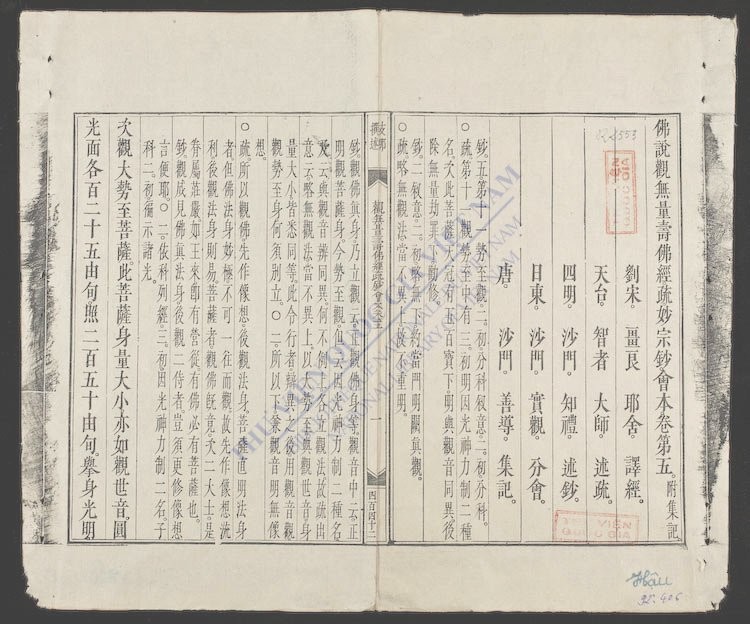 佛說觀無量壽佛經疏妙宗鈔會本卷第五。附集記
劉宋。畺良耶舍。譯經。
天台。智者大師。述疏。
四明。沙門。知禮。述鈔。
日東。沙門。實觀。分會。
唐。沙門。善導。集記。
鈔。五第十一勢至觀。二。初分科敍意二。初分科。
○疏。第十一觀勢至中有二。初明因光神力制二種
名。次此菩薩天冠有五百寶下明與觀音同異後
除無量劫罪下勸修。
鈔。二敍意二。初略無下約當門明闕眞觀。
○疏。略無觀法當不異上故不重明。
觀無量壽佛經疏妙宗鈔會本卷五
一
四百四十二
鈔。觀佛眞身乃立觀。云正觀佛身等。觀音中云正
明觀菩薩身。今勢至觀但云因光神力制二種名
及云與觀音辨同異。何不例上各立觀法。故疏出
意云略無觀法當不異上。以勢至與觀世音身
量大小皆悉同等。此令行者辯異之後用觀音觀
觀勢至身。何須別立。○二。所以下兼觀音明無像
想。
○疏。所以觀佛先作像想。後觀法身。菩薩直明法身
者。但佛法身妙極不可一往而觀。故先作像想。洗
利後觀法身則易。菩薩者觀佛旣竟。次二大士是
眷屬莊嚴。如王來即有營從。有佛必有菩薩也。
鈔。觀成見佛眞法身。後觀二侍者。豈須更修像想
言便耶。○二。依科列經三。初因光神力制二名。子
科二。初徧示諸光。
次觀大勢至菩薩。此菩薩身量大小。亦如觀世音。圓
光面各百二十五由旬。照二百五十由旬。擧身光明
THƯ VIỆN QUỐC GIA VIỆT NAM
NATIONAL LIBRARY OF VIETNAM
THƯ VIỆN
QUỐC GIA
35.406